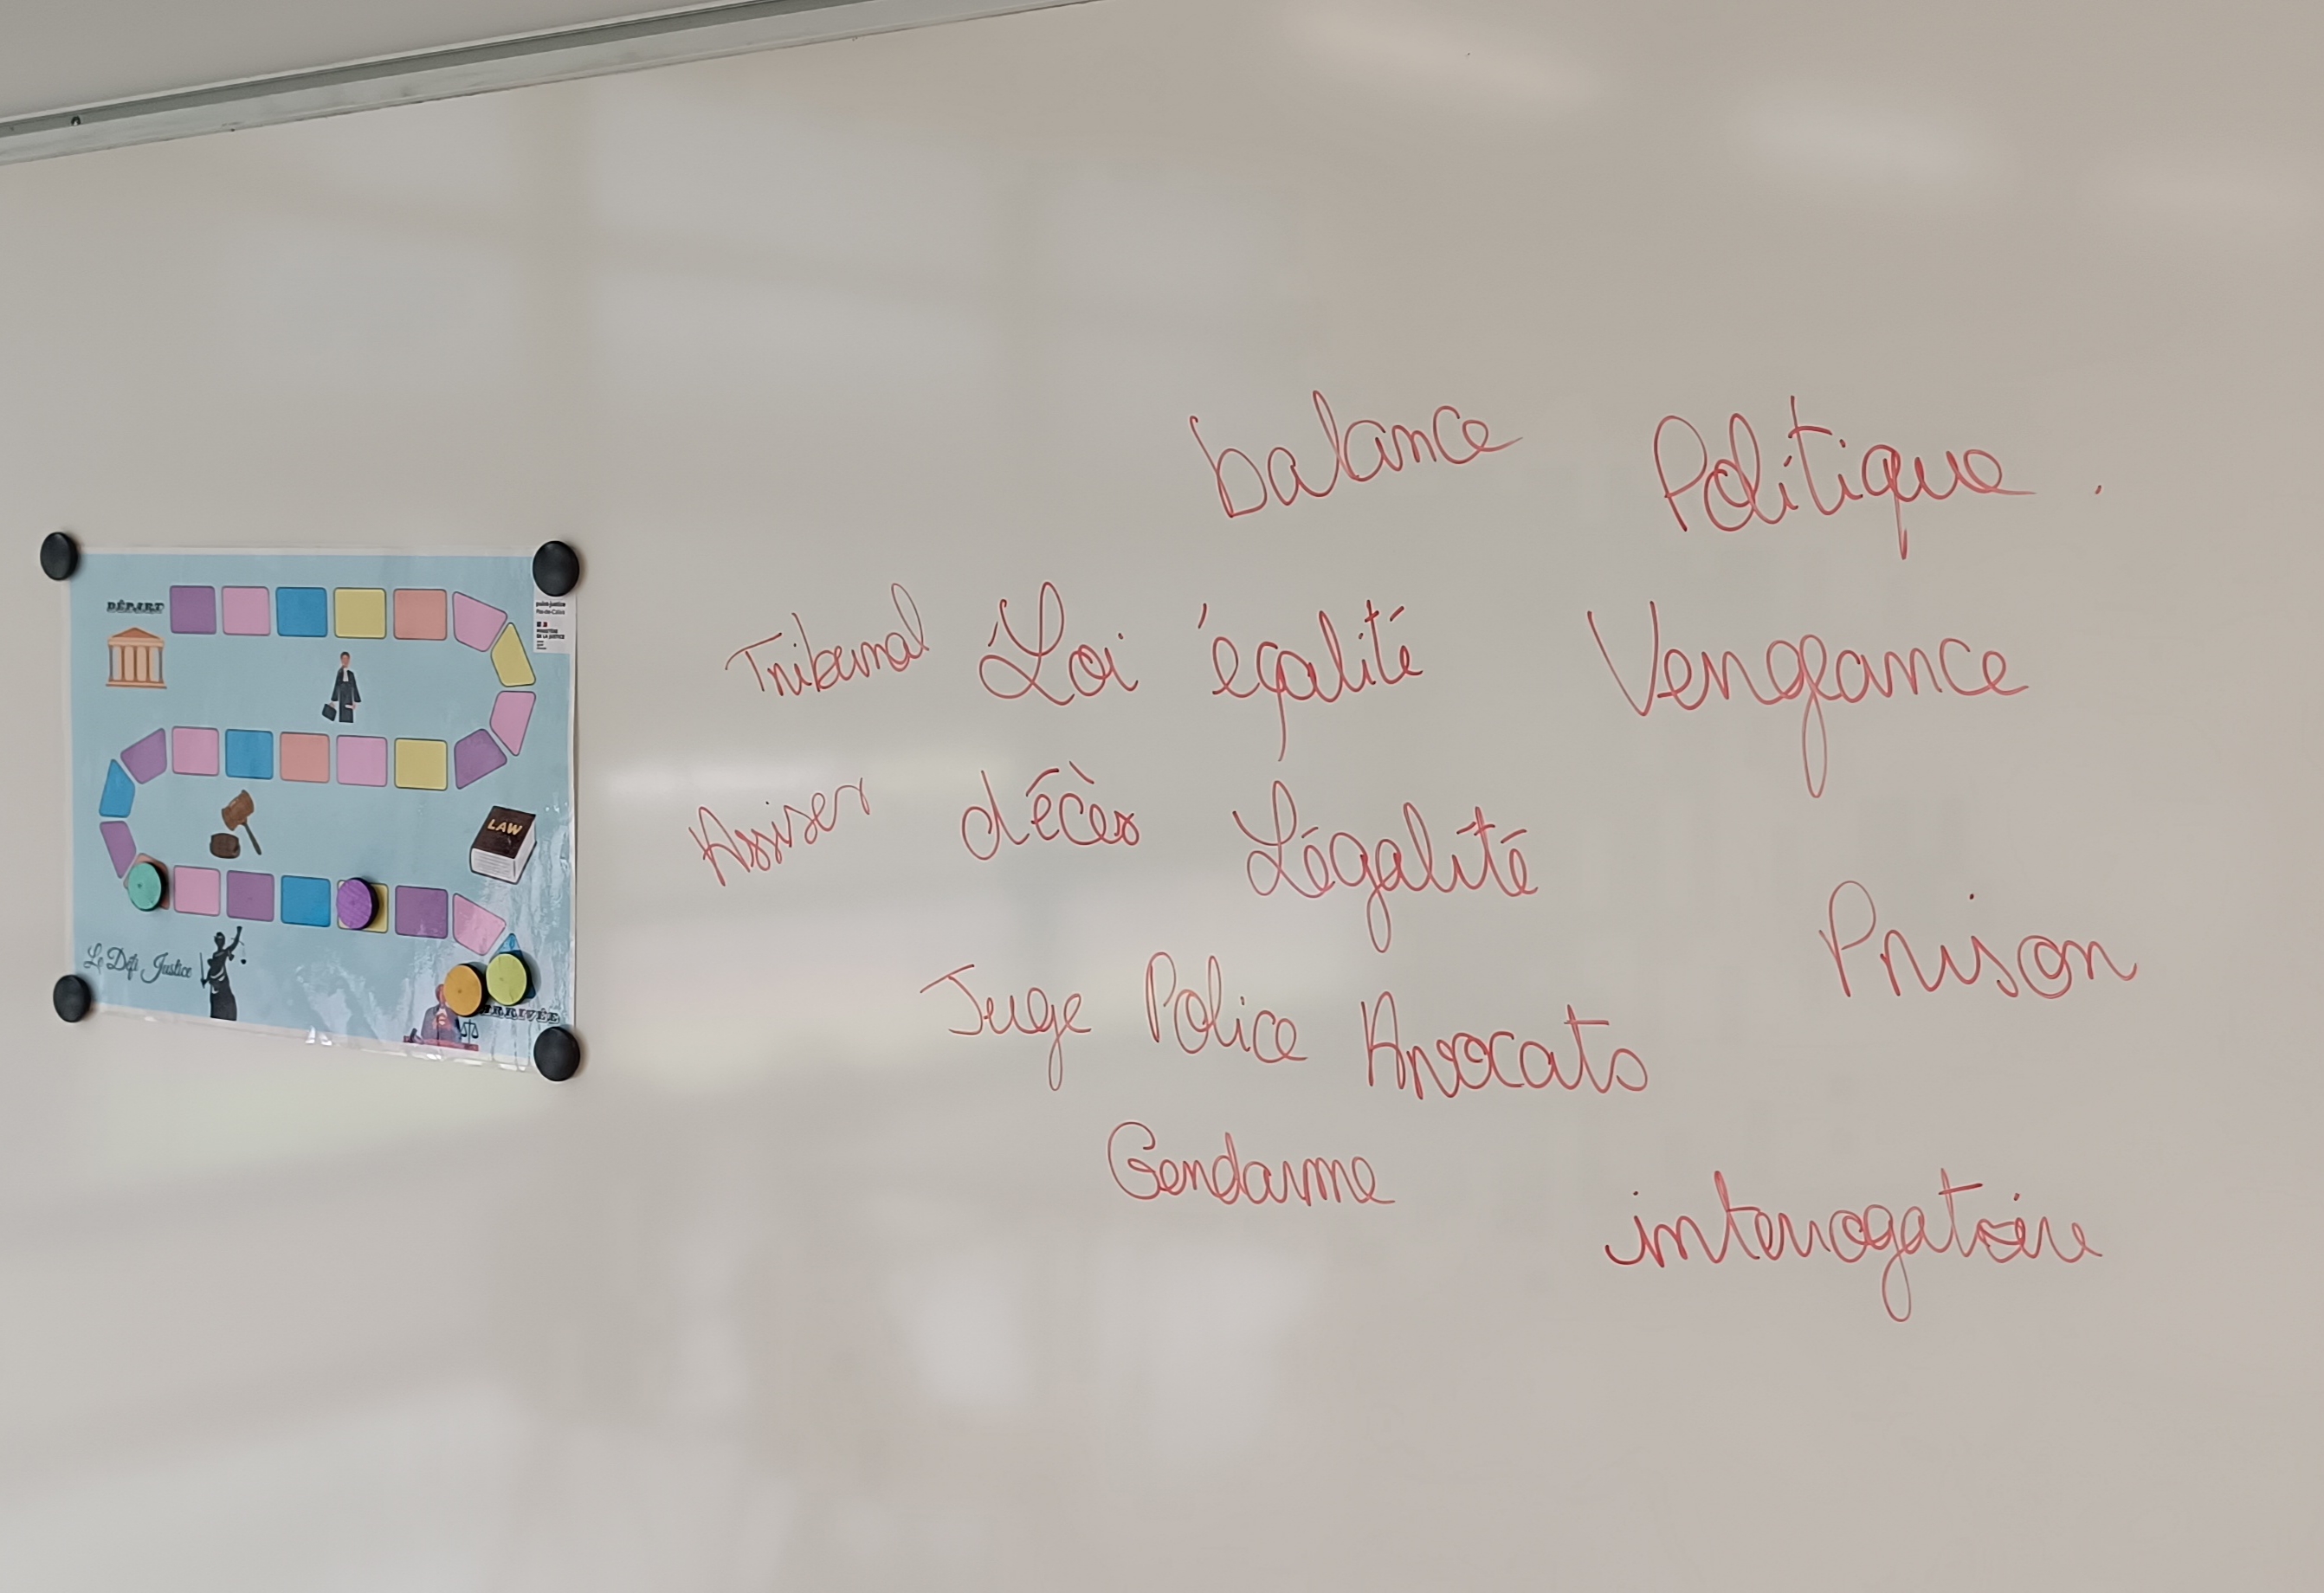 balance Politique.
Tribunal Loi égalité Vengeance
Assises décès Légalité
Prison
Juge Police Avocats
Gendarme
interrogatoire
DÉPART
point-justice
Pas-de-Calais
MINISTÈRE
DE LA JUSTICE
LAW
Le Défi Justice
ARRIVÉE